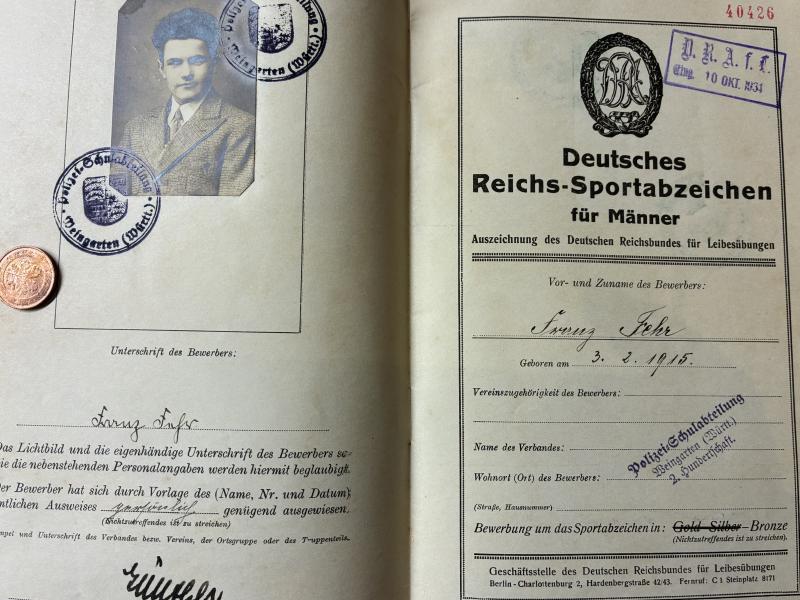 Polizei-Schulabteilung
Weingarten (Württ.)
Polizei-Schulabteilung
Weingarten (Württ.)
Unterschrift des Bewerbers:
Franz Fehr
Das Lichtbild und die eigenhändige Unterschrift des Bewerbers so-
wie die nebenstehenden Personalangaben werden hiermit beglaubigt.
Der Bewerber hat sich durch Vorlage des (Name, Nr. und Datum)
amtlichen Ausweises persönlich genügend ausgewiesen.
(Nichtzutreffendes ist zu streichen)
Stempel und Unterschrift des Verbandes bezw. Vereins, der Ortsgruppe oder des Truppenteils.
40426
D. R. A. f. L.
Eing. 10 OKT. 1934
DRA
Deutsches
Reichs-Sportabzeichen
für Männer
Auszeichnung des Deutschen Reichsbundes für Leibesübungen
Vor- und Zuname des Bewerbers:
Franz Fehr
Geboren am 3. 2. 1915.
Vereinszugehörigkeit des Bewerbers:
Name des Verbandes:
Polizei-Schulabteilung
Weingarten (Württ.)
2. Hundertschaft.
Wohnort (Ort) des Bewerbers:
(Straße, Hausnummer)
Bewerbung um das Sportabzeichen in: Gold-Silber-Bronze
(Nichtzutreffendes ist zu streichen).
Geschäftsstelle des Deutschen Reichsbundes für Leibesübungen
Berlin-Charlottenburg 2, Hardenbergstraße 42/43. Fernruf: C 1 Steinplatz 8171